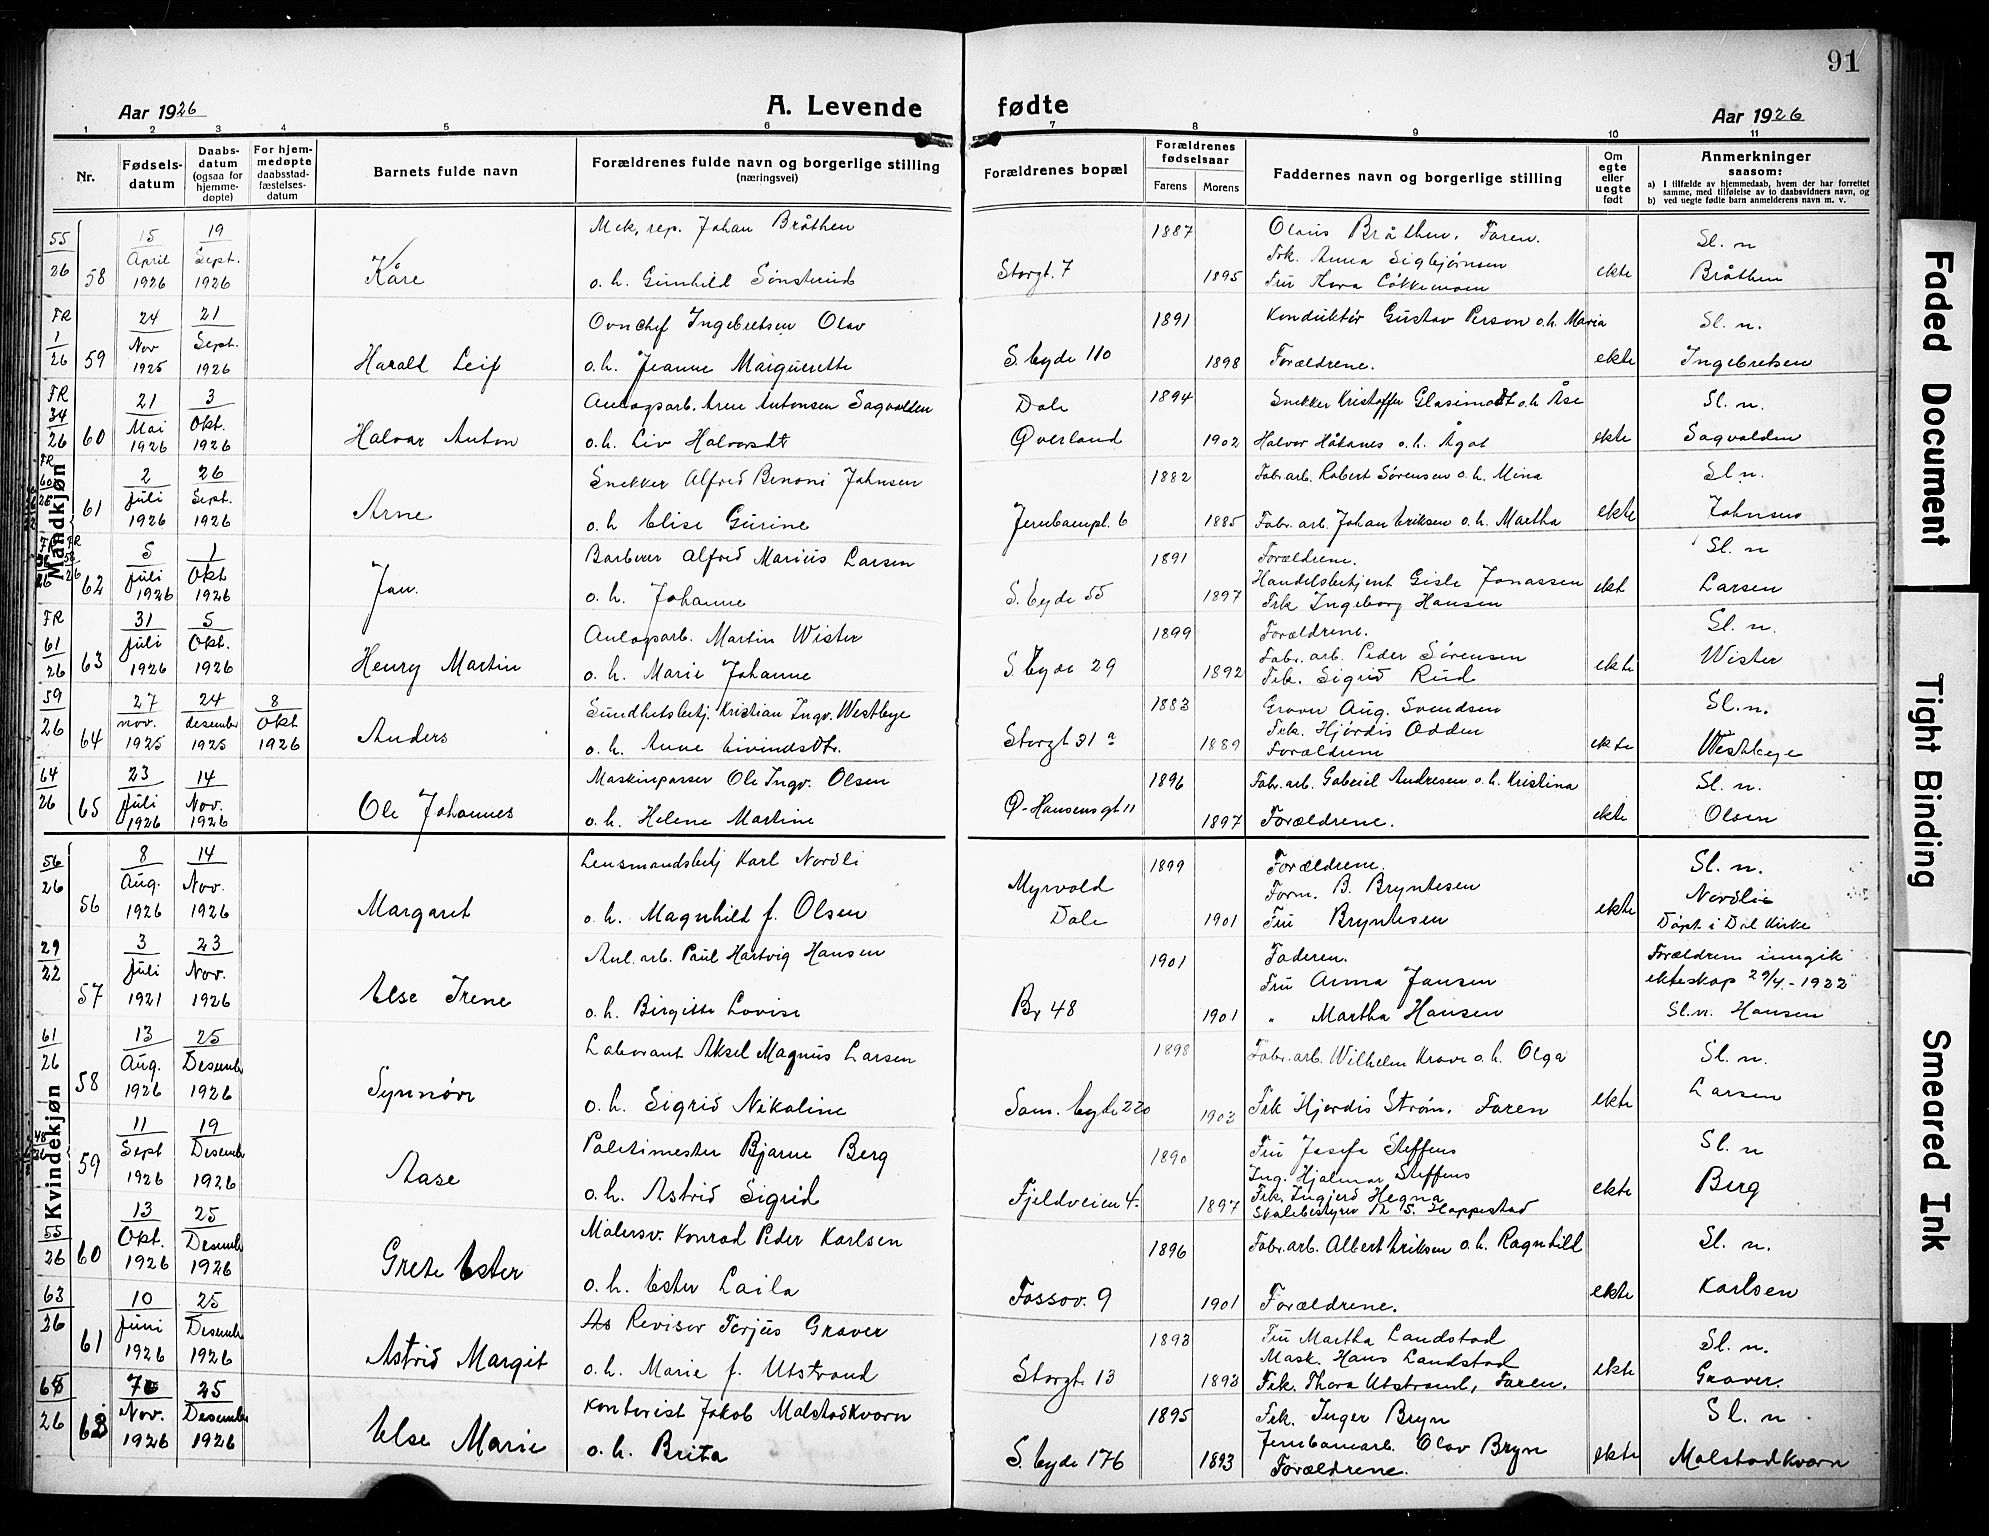 91
Aar 1926
A. Levende fødte
Aar 1926
1 2 3 4 5 6 7 8 9 10 11
Nr.
Fødsels-
datum
Daabs-
datum
(ogsaa for
hjemme-
døpte)
For hjem-
medøpte
daabsstad-
fæstelses-
datum
Barnets fulde navn
Forældrenes fulde navn og borgerlige stilling
(næringsvei)
Forældrenes bopæl
Forældrenes
fødselsaar
Farens Morens
Faddernes navn og borgerlige stilling
Om
egte
eller
uegte
født
Anmerkninger
saasom:
a) I tilfælde av hjemmedaab, hvem der har forrettet
samme, med tilføielse av to daabsvidners navn, og
b) ved uegte fødte barn anmelderens navn m. v.
Mandkjøn
55 15 19 Mek. rep. Johan Bråthen 1887 Olaus Bråthen. Faren. Sl. n
April Sept. Frk. Anna Sigbjørnsen
26 58 1926 1926 Kåre o. h. Gunhild Storgt. 7 1895 Fru ekte Bråthen
FR 24 21 Ingebretsen Olav 1891 Konduktør Gustav Person o.h. Maria Sl. n.
1 Nov Sept.
26 59 1925 1926 Harald Leif o.h. Jeanne Marguerette S. byde 110 1898 Forældrene. ekte Ingebretsen
FR 21 3 Anlagsarb. Arne Antonsen Sagvolden Dale 1894 Snekker Kristoffer o.h. Åse Sl. n.
34 Mai Okt.
26 60 1926 1926 Halvar Anton o.h. Liv Halvorsdt Øverland 1902 Halvor Håkanes o.h. Ågot ekte Sagvolden
FR 60 2 26 Snekker Alfred Benoni Johnsen 1882 Fabr. arb. Robert Sørensen o.h. Mina Sl. n.
26 Juli Sept.
61 1926 1926 Arne o. h Elise Gurine Jernbanepl. 6 1885 Fabr. arb. Johan Eriksen o.h. Martha ekte Johnsen
FR 5 1 Barberer Alfred Marius Larsen 1891 Forældrene. Sl. n
58 Juli Okt Handelsbetjent Gisle Jonassen
26 62 1926 1926 Jan. o. h. Johanne S. byde 55 1897 Frk Ingeborg Hansen ekt Larsen
FR 31 5 Anlagsarb. Martin Wister 1899 Forældrene. Sl. n.
61 Juli Okt. Fabr. arb. Peder Sørensen
26 63 1926 1926 Henry Martin o. h. Marie Johanne S. byde 29 1892 Frk. Sigrid Rud ekte Wister
59 27 24 8 Sundhetsbetj. Kristian Ingv. Westbye 1883 Graver Aug. Svendsen Sl. n.
nov. desember Okt Frk. Hjørdis Odden
26 64 1925 1925 1926 Anders o. h. Anne Eivindsdtr. Storgt 31 a 1889 Forældrene ekte Westbye
64 23 14 Maskinpasser Ole Ingv. Olsen 1896 Fabr. arb. Gabriel Andresen o.h. Kristina Sl. n.
Juli Nov.
26 65 1926 1926 Ole Johannes o. h. Helene Martine Ø-Hansensgt 11 1897 Forældrene. ekte Olsen
Kvindekjøn
56 8 14 Lensmandsbetj Karl Nordli 1899 Forældrene. Sl. n.
26 Aug. Nov. Myrvold Form. B. Bryntesen Nordlie
56 1926 1926 Margaret o. h. Magnhild f. Olsen Dale 1901 Fru Bryntesen ekte Døpt i Dal Kirke
29 3 23 Anl. arb. Paul Hartvig Hansen 1901 Faderen. Forældrene inngik
22 Juli Nov. Fru Anna Jansen ekteskap 29/4-1922
57 1921 1926 Else Irene o. h. Birgitte Lovise Br 48 1901 " Martha Hansen Sl. n. Hansen
61 13 25 Laborant Aksel Magnus Larsen 1898 Fabr. arb. Wilhelm Krave o.h. Olga Sl. n.
26 Aug. Desembr
58 1926 1926 Synnøve o. h. Sigrid Nikoline Sam. byde 220 1902 Frk Hjørdis Strøm. Faren ekte Larsen
48 11 19 Politimester Bjarne Berg 1890 Fru Josefa Steffens Sl. n
26 Sept Desembr Ing. Hjalmar Steffens
59 1926 1926 Aase o. h. Astrid Sigrid Fjeldveien 4. 1897 Frk. Ingjerd Hegna ekte Berg
Skolebestyrer Hoppestad
55 13 25 Malersv. Konrad Peder Karlsen 1896 Fabr. arb. Albert Eriksen o.h. Ragnhild Sl. n.
Okt. Desembr
26 60 1926 1926 Grete Ester o. h. Ester Laila Fossov. 9 1901 Forældrene. ekte Karlsen
63 10 25 Revisor Terjus Graver 1893 Fru Martha Landstad Sl. n.
26 Juni Desembr Mask. Hans Landstad
61 1926 1926 Astrid Margit o. h. Marie f. Utstrand Storgt. 13 1893 Frk. Thora Utstrand, Faren. ekte Graver.
7 25 Kontorist Jakob Malstadkvarn 1895 Frk. Inger Bryn Sl. n
26 Nov. Desembr Jernbanearb. Olav Bryn
1926 1926 Else Marie o. h. Brita S. byde 176 1893 Forældrene. ekte Malstadkvarn
Faded Document
Tight Binding
Smeared Ink